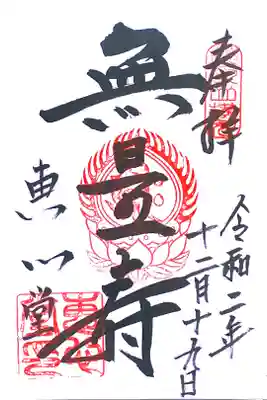 奉拝
令和二年
十二月十九日
無量寿
恵心堂